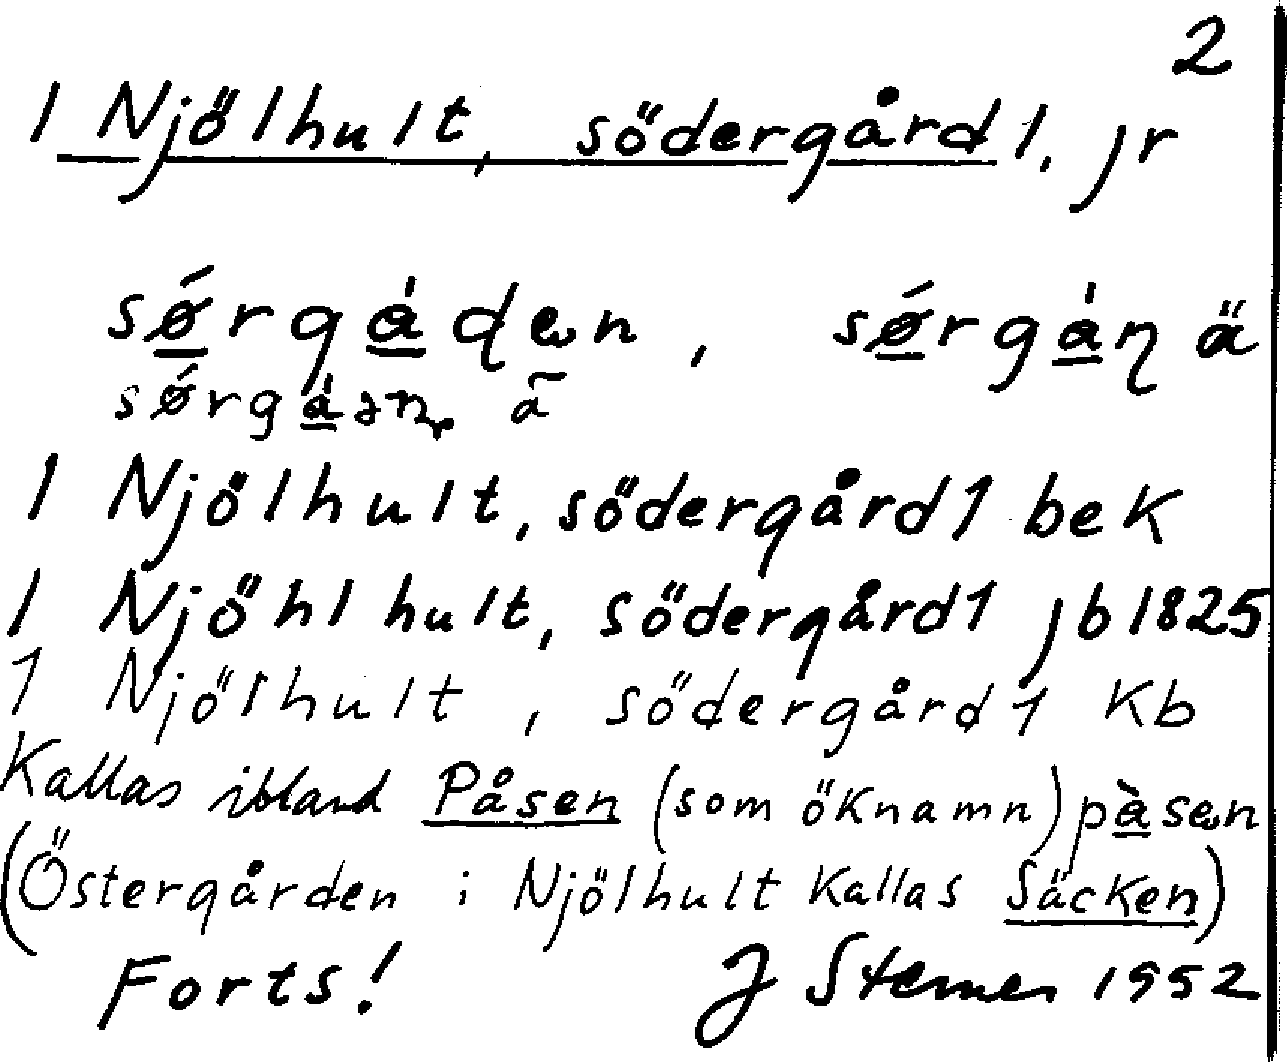 2
1 Njölhult, södergård 1. jr
sǿrgǻden, sǿrgǻŋ ä
sǿrgǻən, ã
1 Njölhult, södergård 1 bek
1 Njöhlhult, södergård 1 jb 1825
1 Njölhult, södergård 1 kb
Kallas ibland Påsen (som öknamn) på̀sen
(Östergården i Njölhult kallas Säcken)
Forts! J Stemer 1952